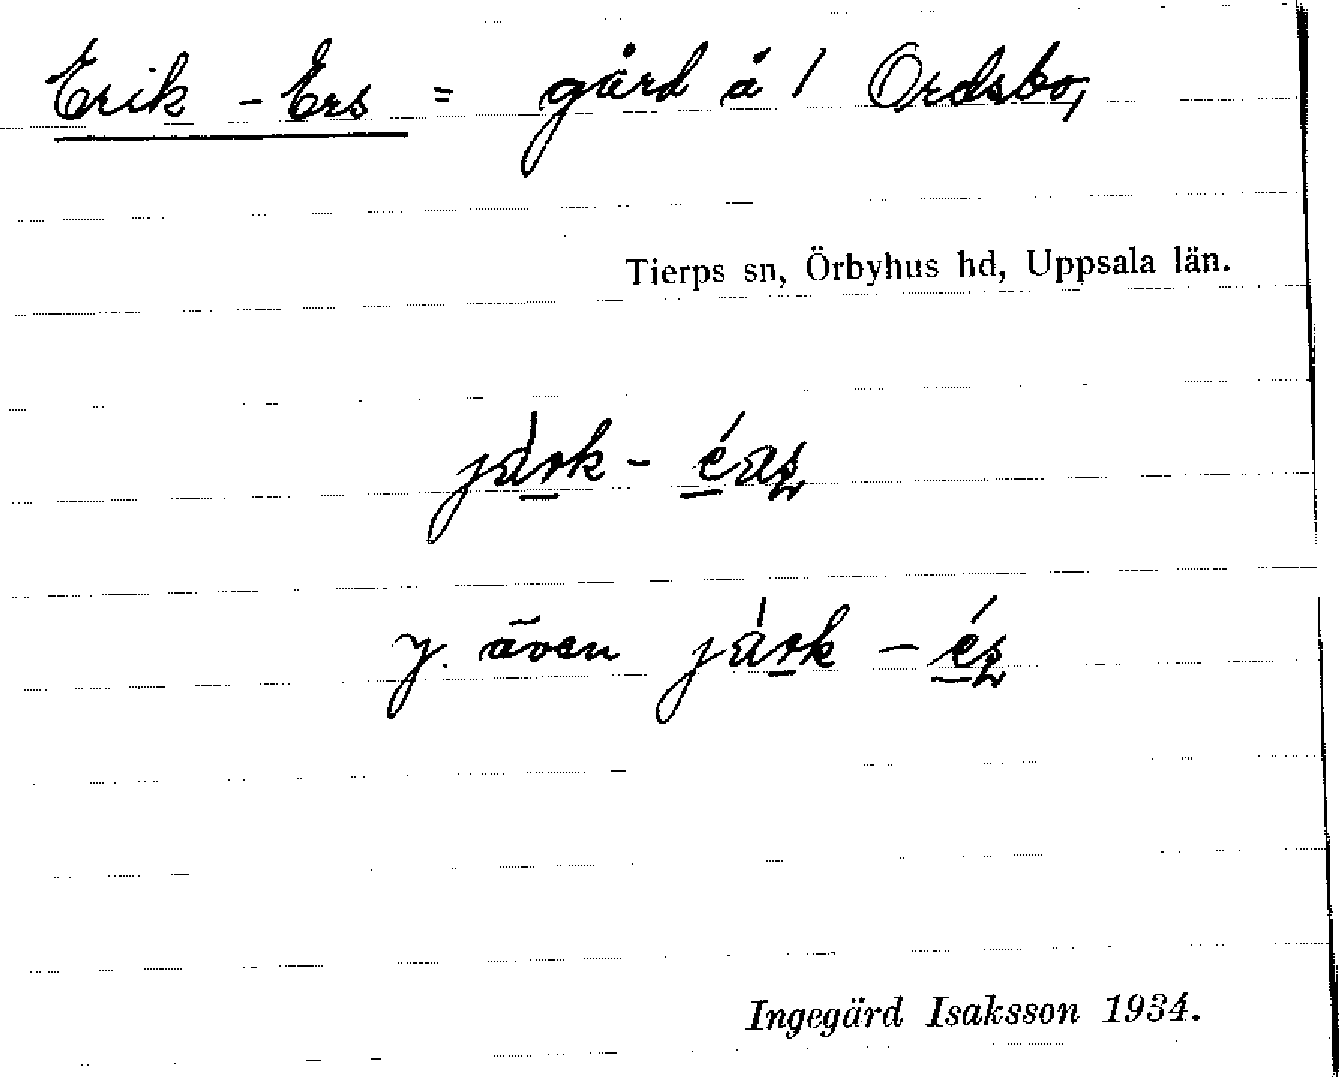 Erik - Ers = gård å 1 Ordsbo,
Tierps sn, Örbyhus hd, Uppsala län.
järk - éaʂ
y. även järk - éʂ
Ingegärd Isaksson 1934.